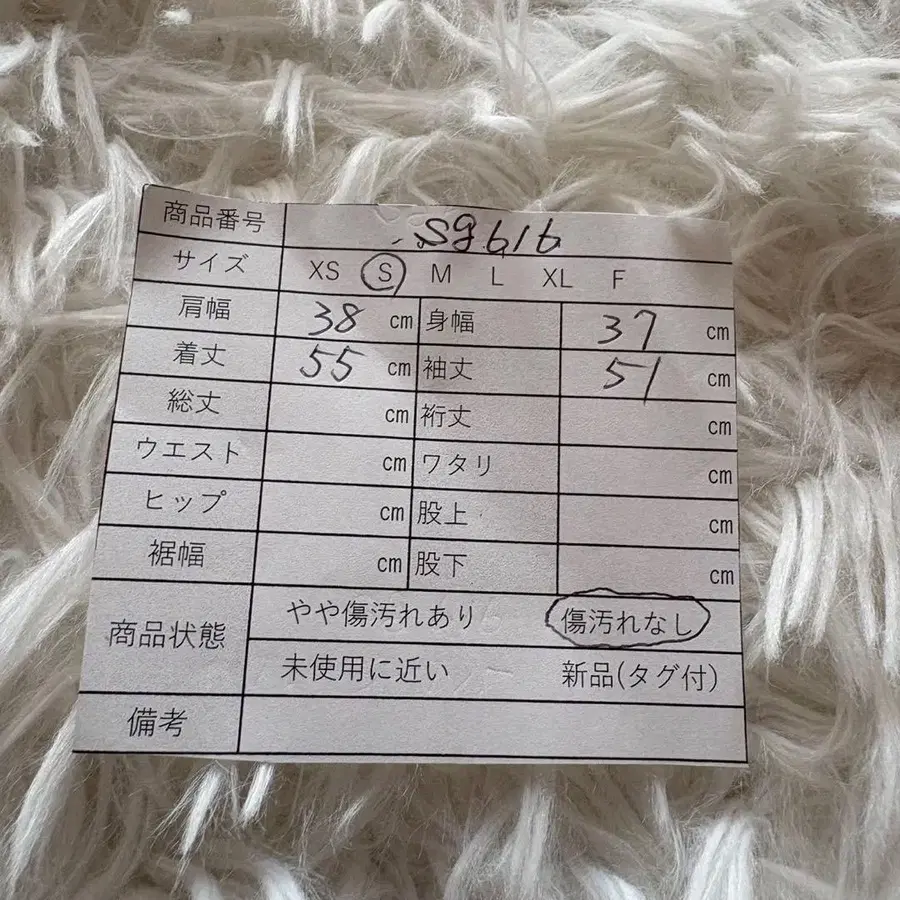 商品番号 sg616
サイズ XS S M L XL F
肩幅 38 cm 身幅 37 cm
着丈 55 cm 袖丈 51 cm
総丈 cm 裄丈 cm
ウエスト cm ワタリ cm
ヒップ cm 股上 cm
裾幅 cm 股下 cm
商品状態 やや傷汚れあり 傷汚れなし
未使用に近い 新品(タグ付)
備考